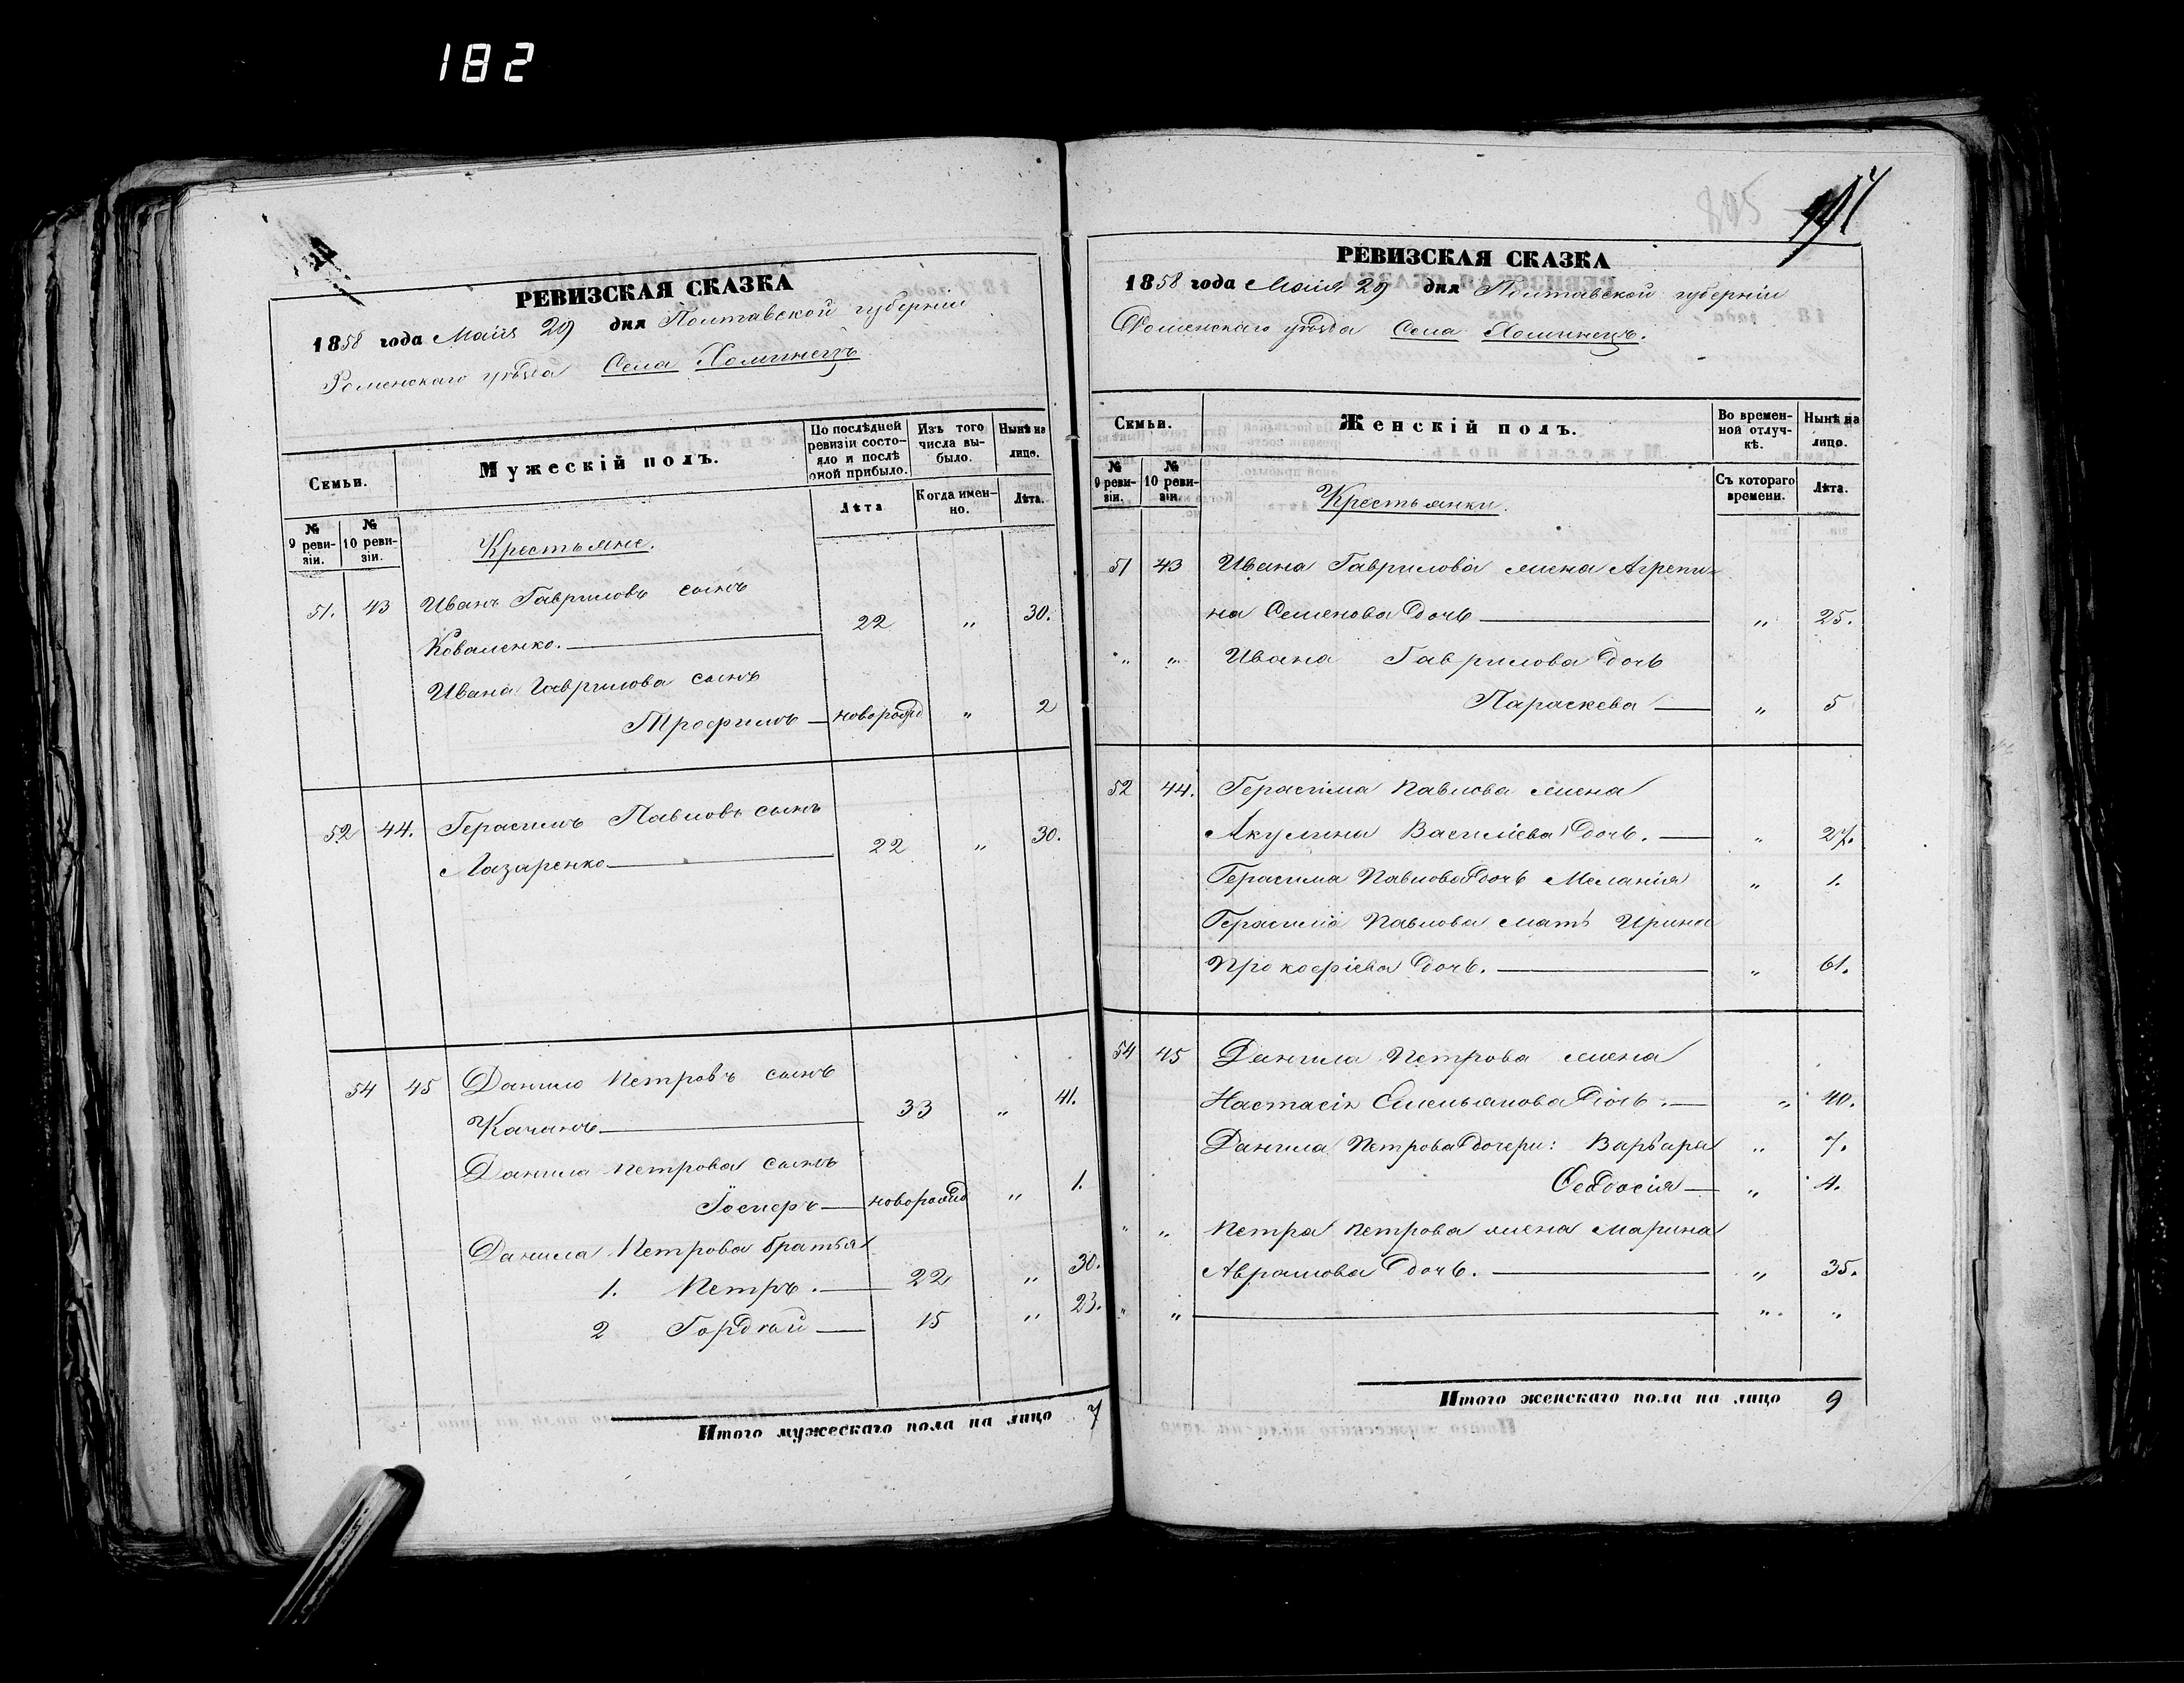 182
РЕВИЗСКАЯ СКАЗКА
1858 года Маия 29 дня Полтавской губерніи
Роменскаго уѣзда Села Хоминецъ
Семьи.
Мужескій полъ.
По послѣдней ревизіи состояло и послѣ оной прибыло.
Изъ того числа выбыло.
Нынѣ на лицо.
№ 9 ревизіи.
№ 10 ревизіи.
Лѣта
Когда именно.
Лѣта.
Крестьяне.
51. 43 Иванъ Гавриловъ сынъ
Коваленко. 22 „ 30.
Ивана Гаврилова сынъ
Трофимъ новорожд „ 2
52 44. Герасимъ Павловъ сынъ
Лазаренко 22 „ 30.
54 45 Данило Петровъ сынъ
Качанъ 33 „ 41.
Данила Петрова сынъ
новорожд „ 1.
Данила Петрова братья
1. Петръ. 22 „ 30.
2 Гордѣй 15 „ 23.
Итого мужескаго пола на лицо 7
805
РЕВИЗСКАЯ СКАЗКА
1858 года Маия 29 дня Полтавской губерніи
Роменскаго уѣзда Села Хоминецъ.
Семьи.
Женскій полъ.
Во временной отлучкѣ.
Нынѣ на лицо.
№ 9 ревизіи.
№ 10 ревизіи.
Съ котораго времени.
Лѣта.
Крестьянки.
51 43 Ивана Гаврилова жена Агрепи-
на Семенова дочь „ 25.
„ „ Ивана Гаврилова дочь
Параскева „ 5
52 44. Герасима Павлова жена
Акулина Василіева дочь. „ 27.
Герасима Павлова дочь Меланія „ 1.
Герасима Павлова мать Ирина
Прокофіева дочь. „ 61.
54 45 Данила Петрова жена
Настасія Емельянова дочь. „ 40.
Данила Петрова дочери: Варвара „ 7.
Феодосія „ 4.
„ „ Петра Петрова жена Марина
Аврамова дочь. „ 35.
„ „ „ „
Итого женскаго пола на лицо 9